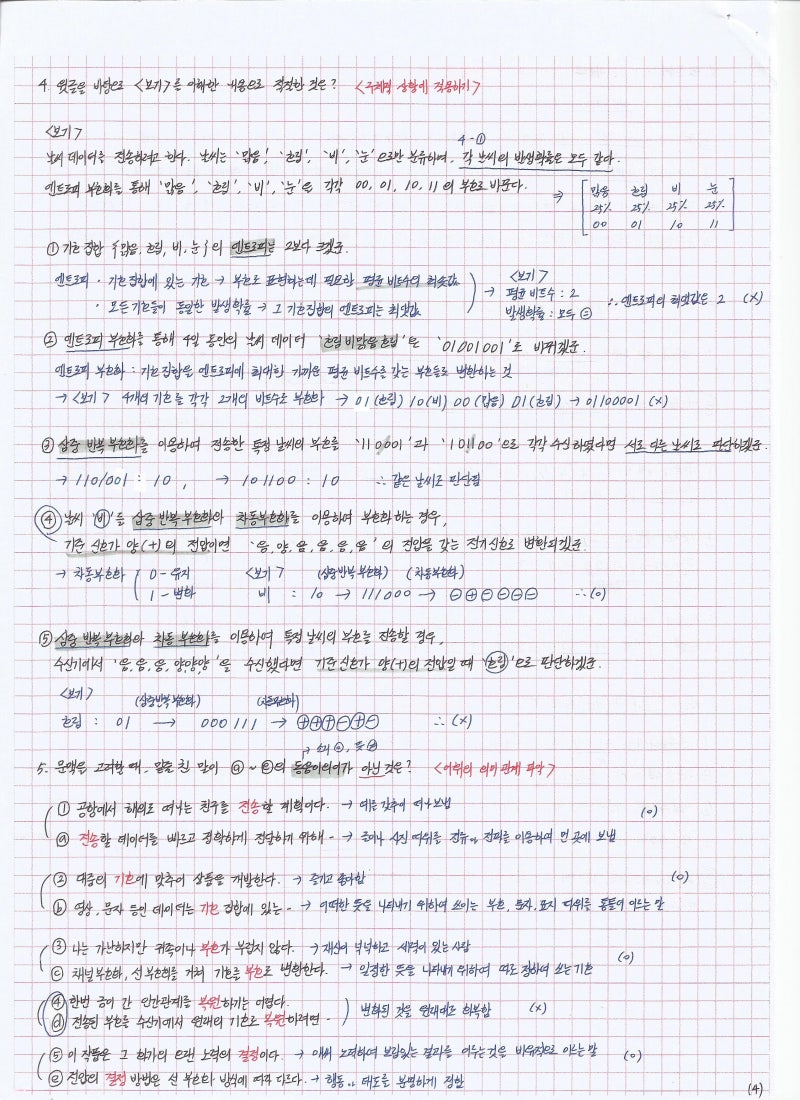 4. 윗글을 바탕으로 <보기>를 이해한 내용으로 적절한 것은? <구체적 상황에 적용하기>
<보기>
4-①
날씨 데이터를 전송하려고 한다. 날씨는 '맑음', '흐림', '비', '눈'으로만 분류하며, 각 날씨의 발생확률은 모두 같다.
엔트로피 부호화를 통해 '맑음', '흐림', '비', '눈'을 각각 00, 01, 10, 11의 부호로 바꾼다. ⇒
맑음 흐림 비 눈
25% 25% 25% 25%
00 01 10 11
① 기호 집합 {맑음, 흐림, 비, 눈}의 엔트로피는 2보다 크겠군.
엔트로피 · 기호 집합에 있는 기호 → 부호로 표현하는데 필요한 평균 비트수의 최솟값
· 모든 기호들이 동일한 발생확률 → 그 기호집합의 엔트로피는 최댓값
→ <보기>
평균 비트수 : 2
발생확률 : 모두 =
∴ 엔트로피의 최댓값은 2 (X)
② 엔트로피 부호화를 통해 4일 동안의 날씨 데이터 '흐림비맑음흐림'은 '01001001'로 바뀌겠군.
엔트로피 부호화 : 기호 집합을 엔트로피에 최대한 가까운 평균 비트수를 갖는 부호들로 변환하는 것
→ <보기> 4개의 기호를 각각 2개의 비트수로 부호화 → 01(흐림) 10(비) 00(맑음) 01(흐림) → 01100001 (X)
③ 삼중 반복 부호화를 이용하여 전송한 특정 날씨의 부호를 '110001'과 '101100'으로 각각 수신하였다면 서로 다른 날씨로 판단하겠군.
→ 110/001 : 10 , → 101100 : 10 ∴ 같은 날씨로 판단됨
④ 날씨 '비'를 삼중 반복 부호화와 차동 부호화를 이용하여 부호화하는 경우,
기준 신호가 양(+)의 전압이면 '음, 양, 음, 음, 음, 음'의 전압을 갖는 전기 신호로 변환되겠군.
→ 차동부호화 0 - 유지 <보기> (삼중반복부호화) (차동부호화)
1 - 변화 비 : 10 → 111000 → ⊖⊕⊖⊖⊖⊖ ∴(O)
⑤ 삼중 반복 부호화와 차동 부호화를 이용하여 특정 날씨의 부호를 전송할 경우,
수신기에서 '음, 음, 음, 양, 양, 양'을 수신했다면 기준 신호가 양(+)의 전압일 때 '흐림'으로 판단하겠군.
<보기> (삼중반복부호화) (차동부호화)
흐림 : 01 → 000111 → ⊕⊕⊕⊖⊕⊖ ∴ (X)
5. 문맥을 고려할 때, 밑줄 친 말이 ⓐ~ⓔ의 동음이의어가 아닌 것은? <어휘의 의미 관계 파악>
① 공항에서 해외로 떠나는 친구를 전송할 계획이다. → 예를 갖추어 떠나보냄 (O)
ⓐ 전송할 데이터를 빠르고 정확하게 전달하기 위해 - → 글이나 사진 따위를 전류 or 전파를 이용하여 먼 곳에 보냄
② 대중의 기호에 맞추어 상품을 개발한다. → 즐기고 좋아함 (O)
ⓑ 영상, 문자 등인 데이터는 기호 집합에 있는 - → 어떠한 뜻을 나타내기 위하여 쓰이는 부호, 문자, 표지 따위를 통틀어 이르는 말
③ 나는 가난하지만 귀족이나 부호가 부럽지 않다. → 재산이 넉넉하고 세력이 있는 사람 (O)
ⓒ 채널 부호화, 선 부호화를 거쳐 기호를 부호로 변환한다. → 일정한 뜻을 나타내기 위하여 따로 정하여 쓰는 기호
④ 한번 금이 간 인간관계를 복원하기는 어렵다.
ⓓ 전송된 부호를 수신기에서 원래의 기호로 복원하려면 - ) 변화된 것을 원래대로 회복함 (X)
⑤ 이 작품은 그 화가의 오랜 노력의 결정이다. → 애써 노력하여 보람있는 결과를 이루는 것을 비유적으로 이르는 말 (O)
ⓔ 전압의 결정 방법은 선 부호화 방식에 따라 다르다. → 행동 or 태도를 분명하게 정함
(4)